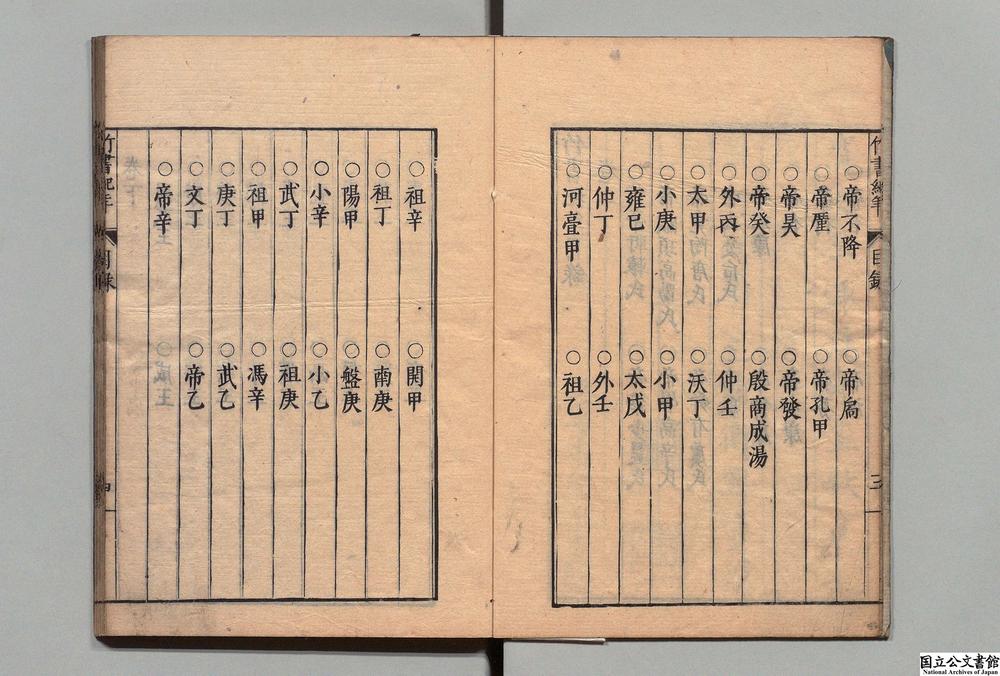 竹書紀年 目錄 三
○帝不降 ○帝扃
○帝厪 ○帝孔甲
○帝昊 ○帝發
○帝癸 ○殷商成湯
○外丙 ○仲壬
○太甲 ○沃丁
○小庚 ○小甲
○雍巳 ○太戊
○仲丁 ○外壬
○河亶甲 ○祖乙
○祖辛 ○開甲
○祖丁 ○南庚
○陽甲 ○盤庚
○小辛 ○小乙
○武丁 ○祖庚
○祖甲 ○馮辛
○庚丁 ○武乙
○文丁 ○帝乙
○帝辛
竹書紀年 目錄
国立公文書館
National Archives of Japan